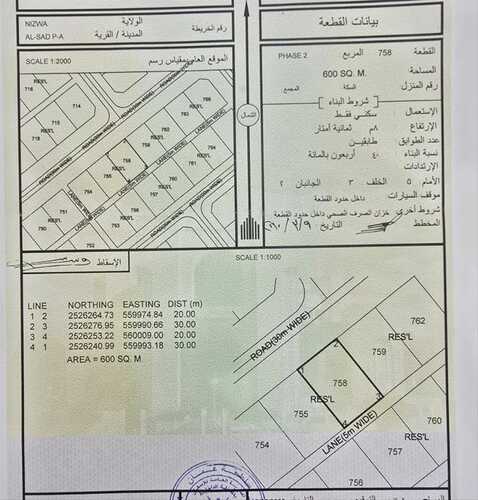 NIZWA
الولاية
AL-SAD P-A
المدينة / القرية
رقم الخريطة
بيانات القطعة
SCALE 1:2000
الموقع العام بمقياس رسم
716
714
718
RES'L
RES'L
766
764
762
760
759
758
756
755
754
752
RES'L
RES'L
ROAD(30m WIDE)
LANE(5m WIDE)
الشمال
PHASE 2
المربع
758
القطعة
600 SQ. M.
المساحة
المجمع
السكة
رقم المنزل
شروط البناء
الإستعمال: سكني فقط
الإرتفاع ٨م ثمانية أمتار
عدد الطوابق طابقين
نسبة البناء ٤٠ أربعون بالمائة
الإرتدادات
الأمام ٥ الخلف ٣ الجانبان ٢
موقف السيارات داخل حدود القطعة
شروط أخرى خزان الصرف الصحي داخل حدود القطعة
المخطط
التاريخ
الإسقاط
SCALE 1:1000
LINE NORTHING EASTING DIST (m)
1 2 2526264.73 559974.84 20.00
2 3 2526276.95 559990.66 30.00
3 4 2526253.22 560009.00 20.00
4 1 2526240.99 559993.18 30.00
AREA = 600 SQ. M
ROAD(30m WIDE)
762
RES'L
759
1
2
758
RES'L
755
3
4
LANE(5m WIDE)
754
760
RES'L
757
756